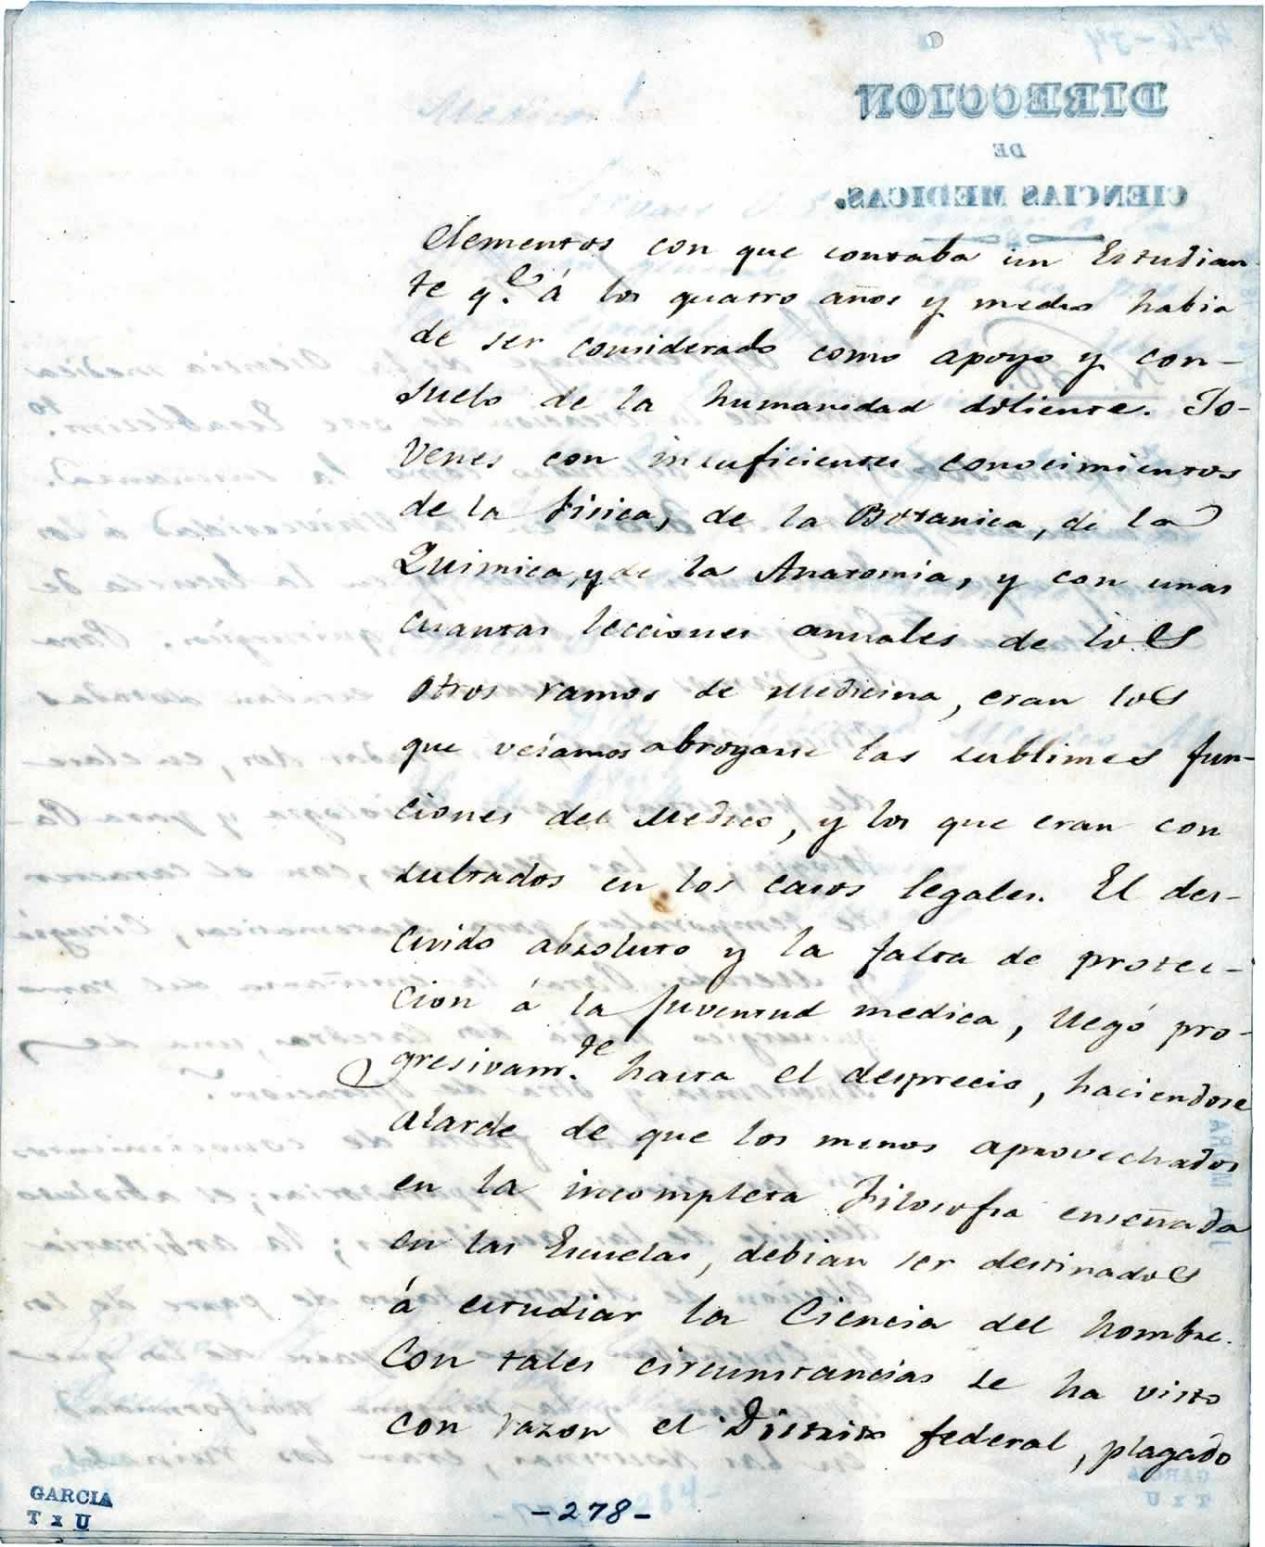 elementos con que contaba un Estudian-
te q.e á los quatro años y medio habia
de ser considerado como apoyo y con-
suelo de la humanidad doliente. Jo-
venes con insuficientes conocimientos
de la fisica, de la Botanica, de la
Quimica, y de la Anatomia, y con unas
cuantas lecciones annales de los
otros ramos de Medicina, eran los
que veíamos abrogarse las sublimes fun-
ciones del Medico, y los que eran con
sultados en los casos legales. El des-
cuido absoluto y la falta de protec-
cion á la Juventud medica, llegó pro-
gresivam.te hasta el desprecio, haciendose
alarde de que los menos aprovechados
en la incompleta Filosofia enseñada
en las Escuelas, debian ser destinados
á estudiar la Ciencia del hombre.
Con tales circunstancias se ha visto
con razon el Distrito federal, plagado
-278-
GARCIA
T x U
DIRECCION
DE
CIENCIAS MEDICAS.